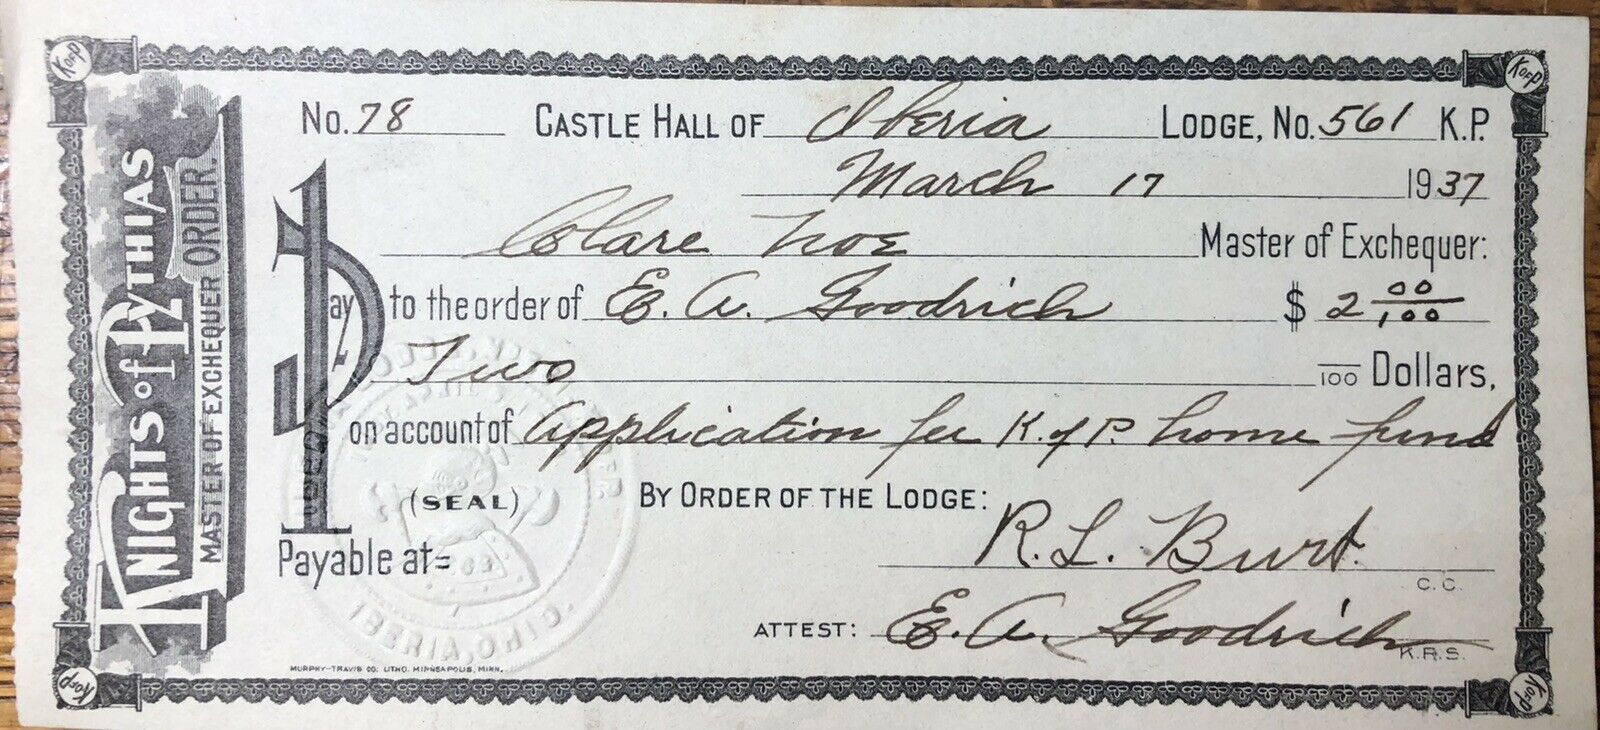 K of P
K of P
KNIGHTS of PYTHIAS
MASTER OF EXCHEQUER ORDER.
No. 78 CASTLE HALL OF Iberia LODGE, No. 561 K.P.
March 17 1937
Clare Noe Master of Exchequer:
Pay to the order of E. A. Goodrich $ 2 00/100
Two /100 Dollars,
on account of Application fee K. of P. home fund
(SEAL) BY ORDER OF THE LODGE:
R. L. Burt.
C. C.
Payable at=
IBERIA, OHIO.
ATTEST: E. A. Goodrich
K. R. S.
MURPHY-TRAVIS CO. LITHO. MINNEAPOLIS, MINN.
K of P
K of P